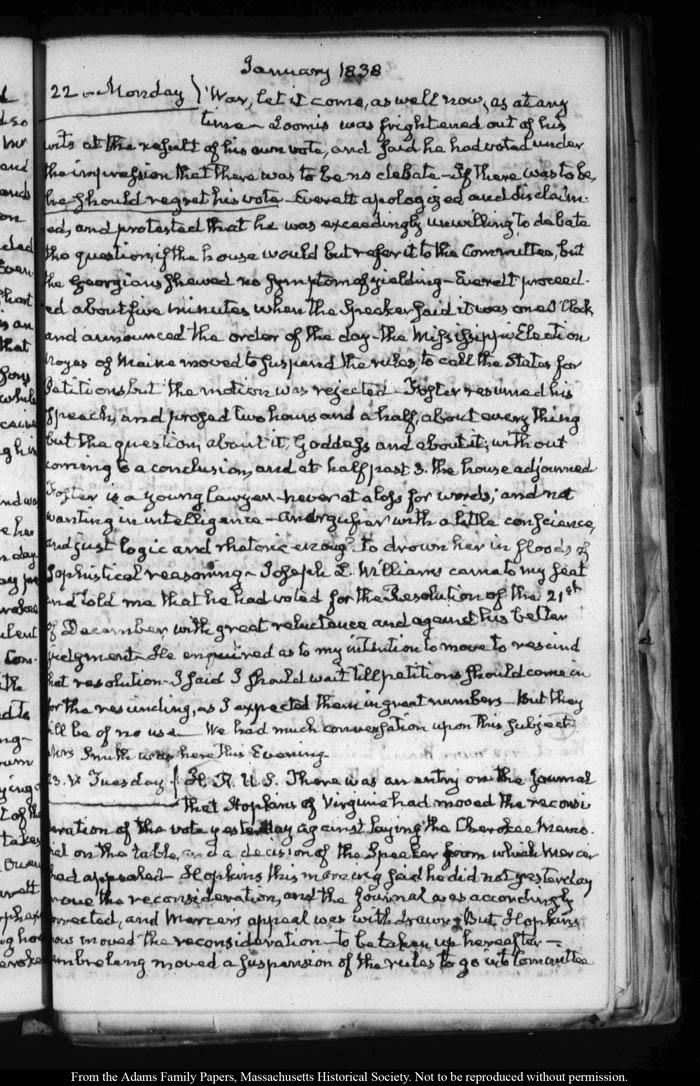 January 1838
22 – Monday } 'War, let it come, as well now, as at any
time – Loomis was frightened out of his
wits at the result of his own vote, and said he had voted under
the impression that there was to be no debate – If there was to be,
he should regret his vote – Everett apologized and disclaim-
ed, and protested that he was exceedingly unwilling to debate
the question, if the house would but refer it to the Committee, but
the Georgians shewed no symptom of yielding – Everett proceed-
ed about five minutes when the Speaker said it was one o'Clock
and announced the order of the day – the Mississippi Election
Noyes of Maine moved to suspend the rules, to call the States for
Petitions but the motion was rejected – Foster resumed his
speech, and prosed two hours and a half, about every thing
but the question, about it, Goddess and about it; without
coming to a conclusion, and at half past 3. the house adjourned
Foster is a young lawyer – never at a loss for words; and not
wanting in intelligence – with a little conscience,
and just logic and rhetoric enough to drown her in floods of
sophistical reasoning – Joseph L. Williams came to my seat
and told me that he had voted for the Resolution of the 21st
of December with great reluctance and against his better
judgment – He enquired as to my intention to move to rescind
that resolution – I said I should wait till petitions should come in
for the rescinding, as I expected them in great numbers – But they
will be of no use – We had much conversation upon this subject
Mrs Smith was here this Evening
23. V. Tuesday { H. R. U. S. There was an entry on the Journal
that Hopkins of Virginia had moved the reconsi
deration of the vote yesterday against laying the Cherokee Memo-
rial on the table, and a decision of the Speaker from which Mercer
had appealed – Hopkins this morning said he did not yesterday
move the reconsideration, and the Journal was accordingly
corrected, and Mercer's appeal was withdrawn – But Hopkins
now moved the reconsideration – to be taken up hereafter –
Cambreleng moved a suspension of the rules to go into Committee
From the Adams Family Papers, Massachusetts Historical Society. Not to be reproduced without permission.